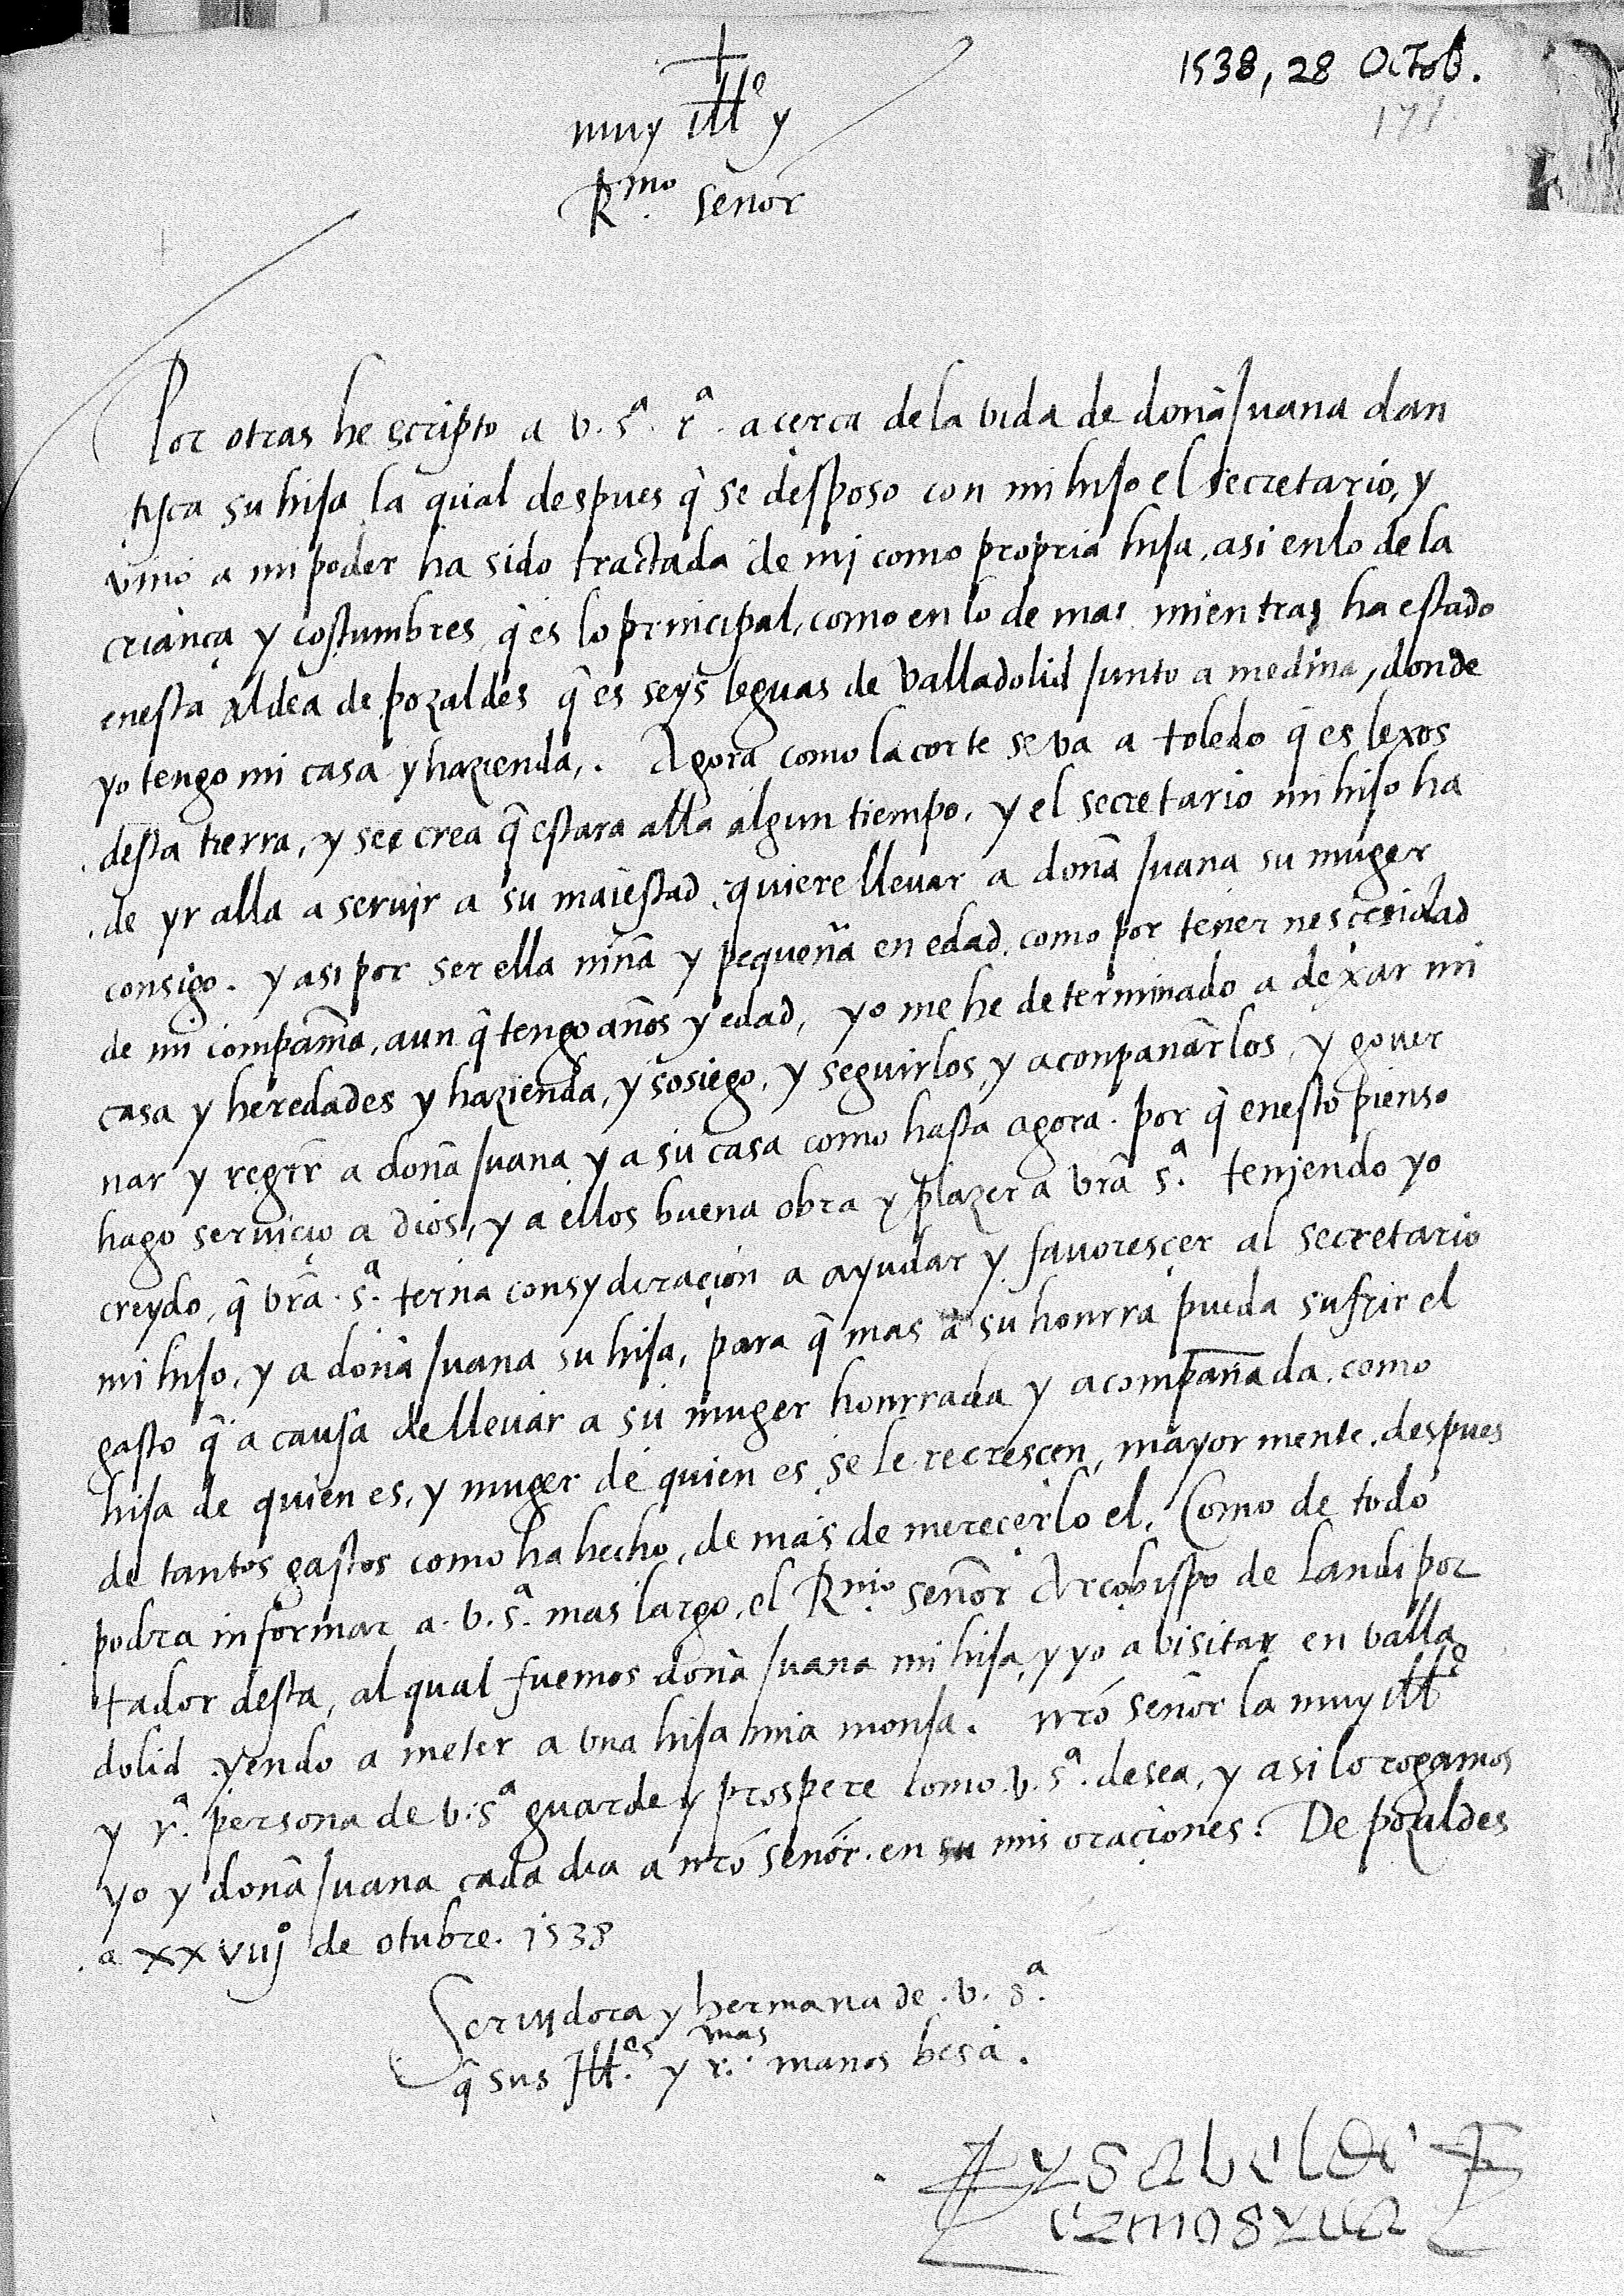 1538, 28 Octob.
171
muy Ille y
Rmo. señor
Por otras he scripto a v. sª. rª. acerca de la vida de doña Juana dan
tisca su hija la qual despues q̃ se desposo con mi hijo el secretario, y
vino a mi poder ha sido tractada de mi como propria hija, asi en lo de la
criança y costumbres q̃ es lo principal, como en lo de mas mientras ha estado
enesta aldea de pozaldes q̃ es seys leguas de Valladolid junto a medina, donde
yo tengo mi casa y hazienda,. Agora como la corte se va a toledo q̃ es lexos
desta tierra, y see crea q̃ estara alla algun tiempo, y el secretario mi hijo ha
de yr alla a servir a su maiestad, quiere llevar a doña Juana su muger
consigo. y asi por ser ella niña y pequeña en edad, como por tener nescesidad
de mi compañia, aun q̃ tengo años y edad, yo me he determinado a dexar mi
casa y heredades y hazienda, y sosiego, y seguirlos, y aconpañarlos, y gover
nar y regir a doña Juana y a su casa como hasta agora. por q̃ enesto pienso
hago servicio a dios, y a ellos buena obra y plazer a vrã sª. teniendo yo
creydo, q̃ vrã. sª. terna consyderaçion a ayudar y favoresçer al secretario
mi hijo, y a doña Juana su hija, para q̃ mas a su honrra pueda sufrir el
gasto q̃ a causa de llevar a su muger honrrada y acompañada, como
hija de quien es, y muger de quien es se le recrescen, mayor mente, despues
de tantos gastos como ha hecho, de mas de merecerlo el. Como de todo
podra informar a. v. sª. mas largo, el Rmo. señor Arcobispo de Landi por
tador desta, al qual fuemos doña Juana mi hija, y yo a visitar en valla
dolid yendo a meter a una hija mia monja. nrõ señor la muy Ille
y rª. persona de v. sª guarde y prospere como. v. sª. desea, y asi lo rogamos
yo y doña Juana cada dia a nrõ señor. en mis oraçiones. De pozaldes
a xxviij de otubre. 1538
Servidora y hermana de. v. sª.
q̃ sus Illes. y rmas. manos besa.
ysabel de
ezmosyna